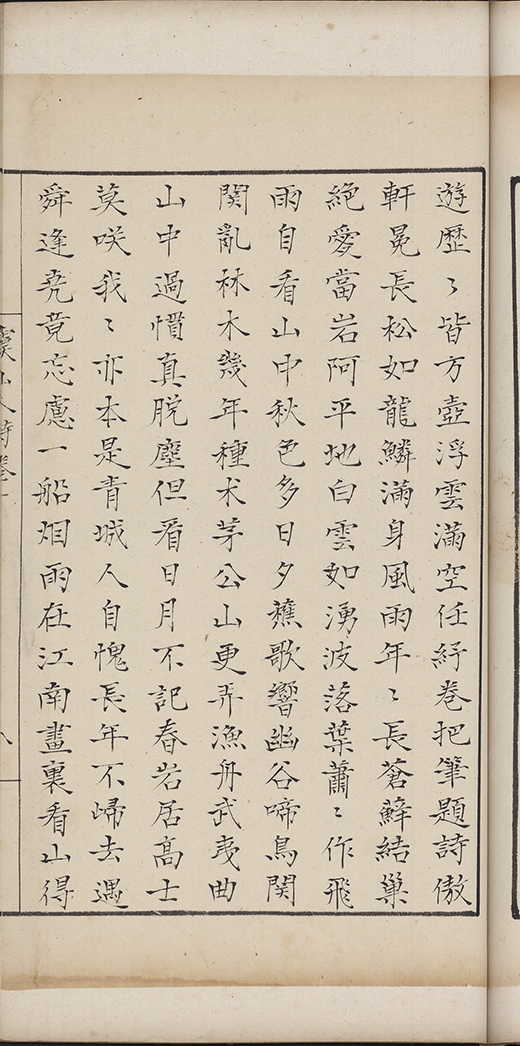 遊歴〻皆方壺浮雲滿空任紓卷把筆題詩傲
軒冕長松如龍鱗滿身風雨年〻長蒼蘚結巢
絶愛當岩阿平地白雲如湧波落葉蕭〻作飛
雨自看山中秋色多日夕蕉歌響幽谷啼鳥関
関亂林木幾年種术茅公山更弄漁舟武夷曲
山中過慣真脱塵但看日月不記春岩居高士
莫咲我〻亦本是青城人自愧長年不歸去遇
舜逢堯竟忘慮一船烟雨在江南畫裏看山得
虞山人詩卷一
八